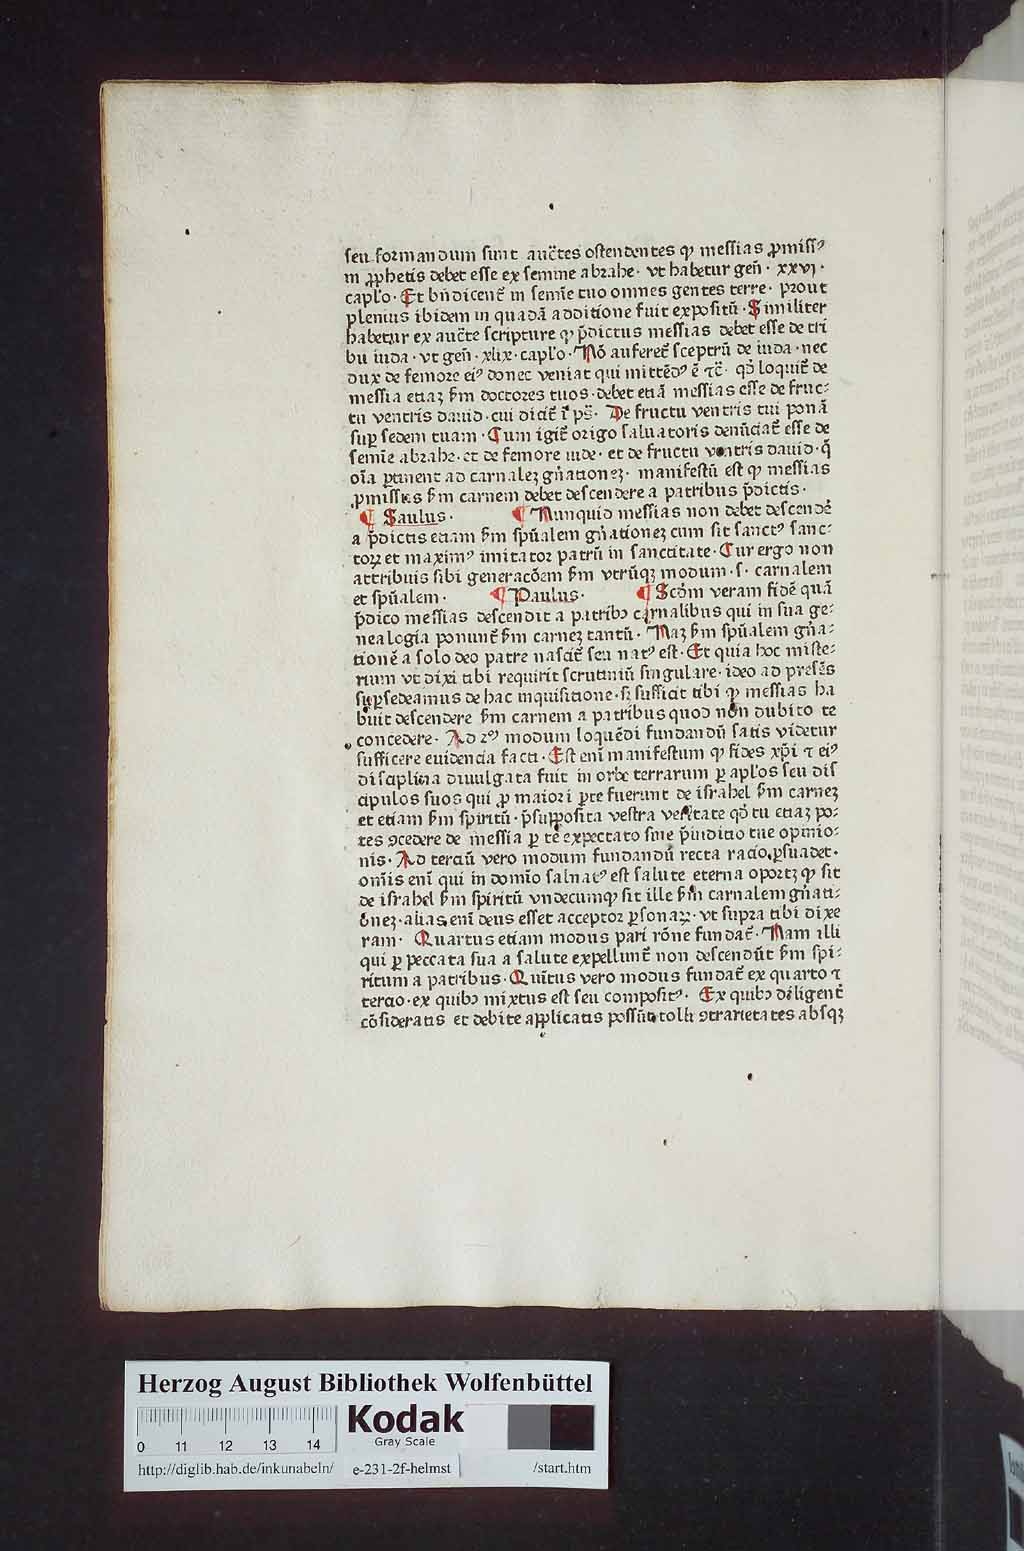 seu formandum sunt auc̄tes ostendentes ꝙ messias ꝓmissꝰ
in ꝓphetis debet esse ex semine abrahe· vt habetur gen̄· xxvi·
capl'o· Et bn̄dicent̄ in semīe tuo omnes gentes terre· prout
plenius ibidem in quadā additione fuit expositū· Similiter
habetur ex auc̄te scripture ꝙ p̄dictus messias debet esse de tri
bu iuda· vt gen̄· xlix· capl'o· Nō auferet̄ sceptrū de iuda· nec
dux de femore eiꝰ donec veniat qui mittēdꝰ ē ⁊c̄· qd' loquit̄ de
messia etiaꝫ ẜm doctores tuos· debet etiā messias esse de fruc⸗
tu ventris dauid· cui dicit̄ ī ps̄· De fructu ventris tui ponā
suꝑ sedem tuam· Cum igit̄ origo saluatoris denūciat̄ esse de
semīe abrahe· et de femore iude· et de fructu ventris dauid· q̄
oīa ꝑtinent ad carnaleꝫ gn̄ationeꝫ· manifestū est ꝙ messias
ꝓmissus ẜm carnem debet descendere a patribus p̄dictis·
¶ Saulus· ¶ Nunquid messias non debet descendē
a p̄dictis etiam ẜm spūalem gn̄ationeꝫ cum sit sanctꝰ sanc⸗
toꝝ et maximꝰ imitator patrū in sanctitate· Cur ergo non
attribuis sibi generacōem ẜm vtrūqꝫ modum· s· carnalem
et spūalem· ¶ Paulus· ¶ Scd'm veram fidē quā
p̄dico messias descendit a patribꝰ carnalibus qui in sua ge⸗
nealogia ponunt̄ ẜm carneꝫ tantū· Naꝫ ẜm spūalem gn̄a⸗
tionē a solo deo patre nascit̄ seu natꝰ est· Et quia hoc miste⸗
rium vt dixi tibi requirit scrutiniū singulare· ideo ad presēs
suꝑsedeamus de hac inquisitione· sꝫ sufficit tibi ꝙ messias ha
buit descendere ẜm carnem a patribus quod non dubito te
concedere· Ad 2ꝰ modum loquēdi fundandū satis videtur
sufficere euidencia facti· Est enī manifestum ꝙ fides xp̄i ⁊ eiꝰ
disciplina diuulgata fuit in orbe terrarum ꝑ apl'os seu dis
cipulos suos qui ꝓ maiori ꝑte fuerunt de israhel ẜm carneꝫ
et etiam ẜm spiritū· p̄supposita vestra veritate qd' tu etiaꝫ po⸗
tes ꝯcedere de messia ꝑ te expectato sine p̄iudicio tue opinio⸗
nis· Ad terciū vero modum fundandū recta racio ꝑsuadet·
omīs enī qui in domīo saluatꝰ est salute eterna oportꝫ ꝙ sit
de israhel ẜm spiritū vndecumqꝫ sit ille ẜm carnalem gn̄ati⸗
ōneꝫ· alias enī deus esset acceptor ꝑsonaꝝ· vt supra tibi dixe
ram· Quartus etiam modus pari rōne fundat̄· Nam illi
qui ꝑ peccata sua a salute expellunt̄ non descendūt ẜm spi⸗
ritum a patribus· Quītus vero modus fundat̄ ex quarto ⁊
tercio· ex quibꝰ mixtus est seu compositꝰ· Ex quibꝰ diligent̄
cōsideratis et debite applicatis possūt tolli ꝯtrarietates absqꝫ
Herzog August Bibliothek Wolfenbüttel
0 11 12 13 14
Kodak
Gray Scale
http://diglib.hab.de/inkunabeln/ e-231-2f-helmst /start.htm